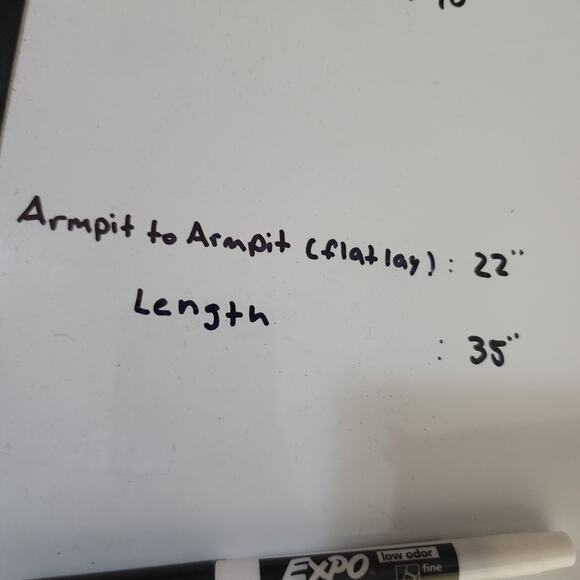 Armpit to Armpit (flat lay) : 22"
Length : 35"
EXPO low odor
fine